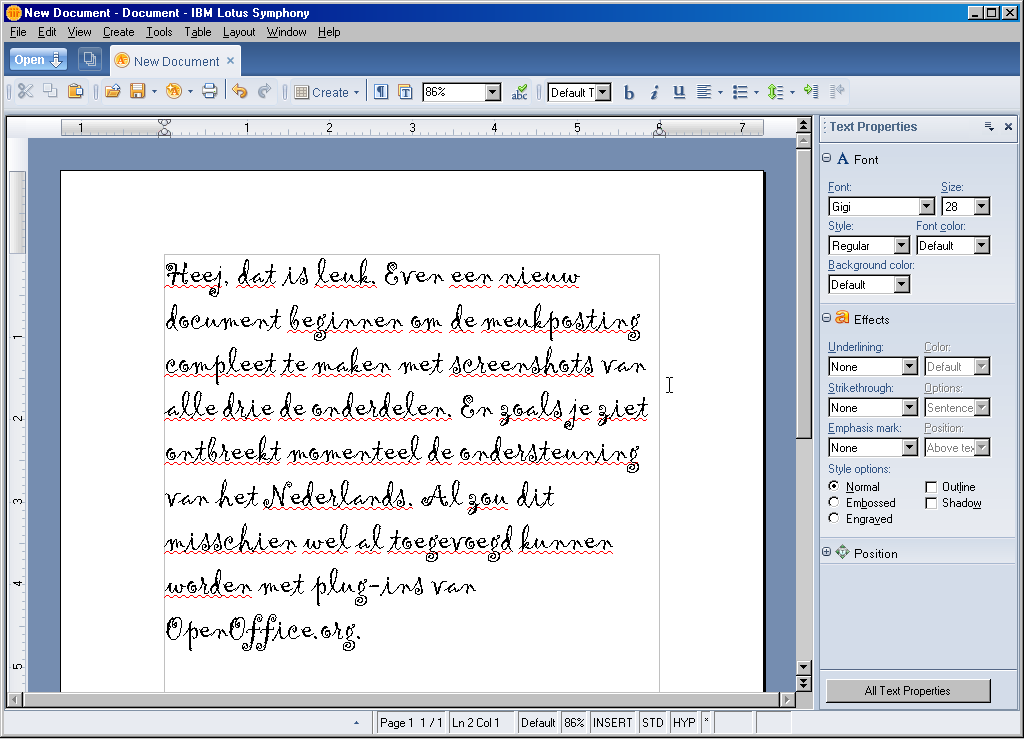 New Document - Document - IBM Lotus Symphony
File Edit View Create Tools Table Layout Window Help
Open New Document
Create 86% abc Default T b i u
1 1 2 3 4 5 6 7
Text Properties
A Font
Font: Size:
Gigi 28
Style: Font color:
Regular Default
Background color:
Default
a Effects
Underlining: Color:
None Default
Strikethrough: Options:
None Sentence
Emphasis mark: Position:
None Above tex
Style options:
Normal Outline
Embossed Shadow
Engraved
Position
All Text Properties
Heej, dat is leuk. Even een nieuw
document beginnen om de meukposting
compleet te maken met screenshots van
alle drie de onderdelen. En zoals je ziet
ontbreekt momenteel de ondersteuning
van het Nederlands. Al zou dit
misschien wel al toegevoegd kunnen
worden met plug-ins van
OpenOffice.org.
1
2
3
4
5
Page 1 1 / 1 Ln 2 Col 1 Default 86% INSERT STD HYP *